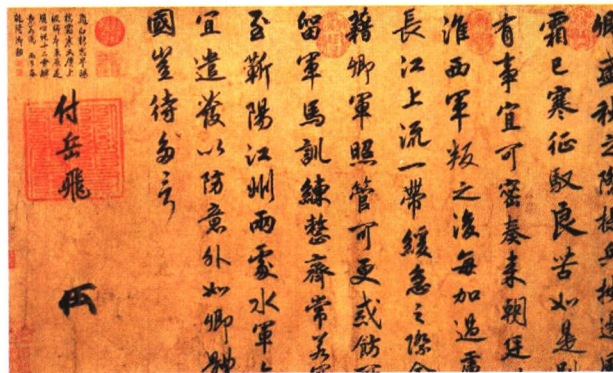 卿盛秋之際提兵按邊
霜已寒征馭良苦如是別
有事宜可密奏来朝廷
淮西軍叛之後每加過慮
長江上流一帶緩急之際全
藉卿軍照管可更戒飭所
留軍馬訓練整齊常若寇
至蘄陽江州兩處水軍亦
宜遣發以防意外如卿體
國豈待多言
付岳飛